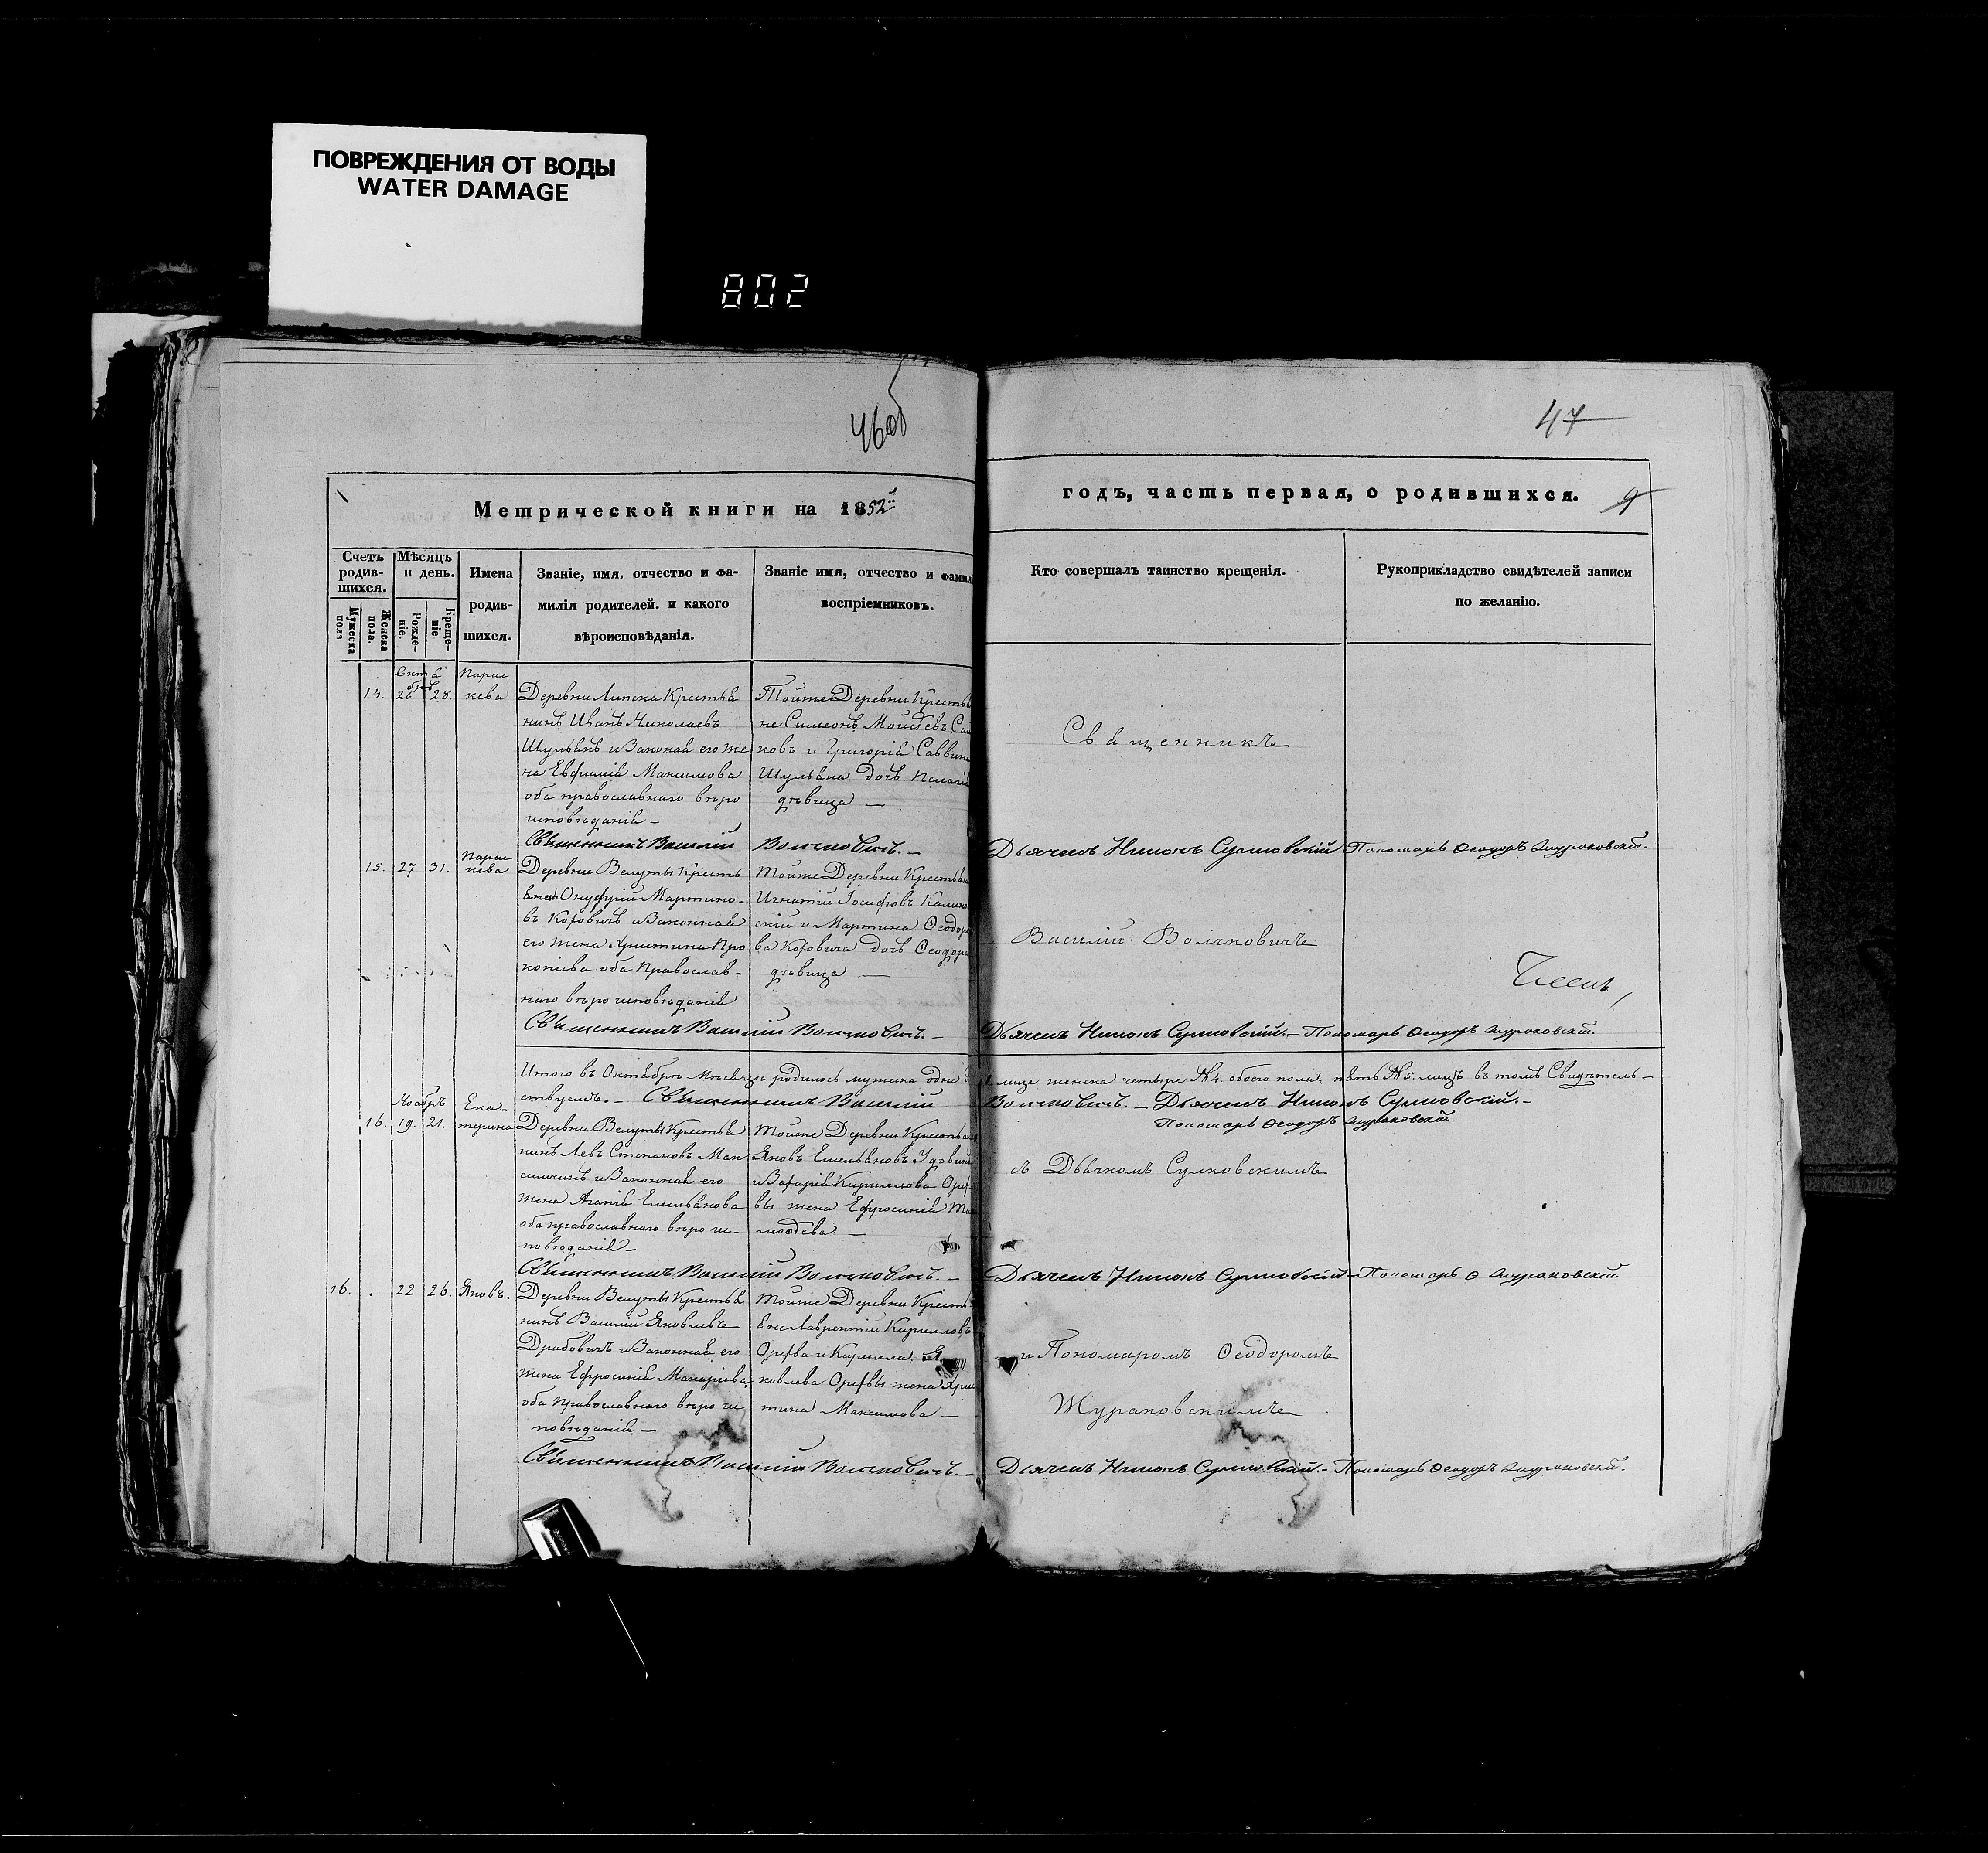 ПОВРЕЖДЕНИЯ ОТ ВОДЫ
WATER DAMAGE
802
46об
47
Метрической книги на 1852й
годъ, часть первая, о родившихся.
9
Счетъ родив-шихся.
Мужеска пола
Женска пола.
Мѣсяцъ и день.
Рожде-ніе.
Креще-ніе
Имена
родив-
шихся.
Званіе, имя, отчество и фа-
милія родителей. и какого
вѣроисповѣданія.
Званіе имя, отчество и фамил
воспріемниковъ.
Кто совершалъ таинство крещенія.
Рукоприкладство свидѣтелей записи
по желанію.
14. 26 28.
Парас
кева
Деревни Липска Крестья
нинъ Иванъ Николаевъ
Шульванъ и Законная его же
на Евфимія Максимова
оба православнаго вѣро
исповѣданія —
Тойже Деревни Крестья
не Симеонъ Моисѣевъ
ковъ и Григорія Саввина
Шульвана дочь Пелагія
дѣвица —
Священникъ
Священникъ Василій Волчковичъ. —
Дьячекъ Никонъ Сулковскій Пономарь Ѳеодоръ Жураковскій.
15. 27 31.
Парас
кева
Деревни Велуты Кресть
янинъ Онуфрій Мартино-
въ Коровичъ и Законная
его жена Христина Про
копіева оба Православ-
наго вѣро исповѣданія
Тойже Деревни Крестьян
Игнатій Іосифовъ Калин
скій и Мартина Ѳеодоро
ва Коровича дочь Ѳеодора
дѣвица —
Василій Волчковичъ
Священникъ Василій Волчковичъ. —
Дьячекъ Никонъ Сулковскій. — Пономарь Ѳеодоръ Жураковскій.
Итого въ Октябрѣ Мѣсяцѣ родилось мужеска одно
лице женска четыре №4. обоего пола пять №5. лицъ въ томъ Свидѣтель-
ствуемъ. — Священникъ Василій
Волчковичъ. — Дьячекъ Никонъ Сулковскій. —
Пономарь Ѳеодоръ Жураковскій.
Ноябрь
16. 19. 21.
Ека-
терина
Деревни Велуты Крестья
нинъ Левъ Степановъ Мак
симчикъ и Законная его
жена Агапія Емельянова
оба православнаго вѣро ис-
повѣданія —
Тойже Деревни Крестьян
Яковъ Емельяновъ
Кириллова
вы жена Ефросинія Ти
моѳѣева —
съ Дьячкомъ Сулковскимъ
Священникъ Василій Волчковичъ. —
Дьячекъ Никонъ Сулковскій — Пономарь Ѳ. Жураковскій.
16. . 22 26. Яковъ.
Деревни Велуты Крестья
нинъ Василій Яковлевъ
Драбовичъ и Законная его
жена Ефросинія Макаріева,
оба Православнаго вѣро ис
повѣданія —
Тойже Деревни Кресть
яне Лаврентій Кирилловъ
и Кирилла Я
ковлева жена Хрис
тина Максимова —
и Пономаромъ Ѳеодоромъ
Жураковскимъ
Священникъ Василій Волчковичъ. —
Дьячекъ Никонъ Сулковскій. — Пономарь Ѳеодоръ Жураковскій.